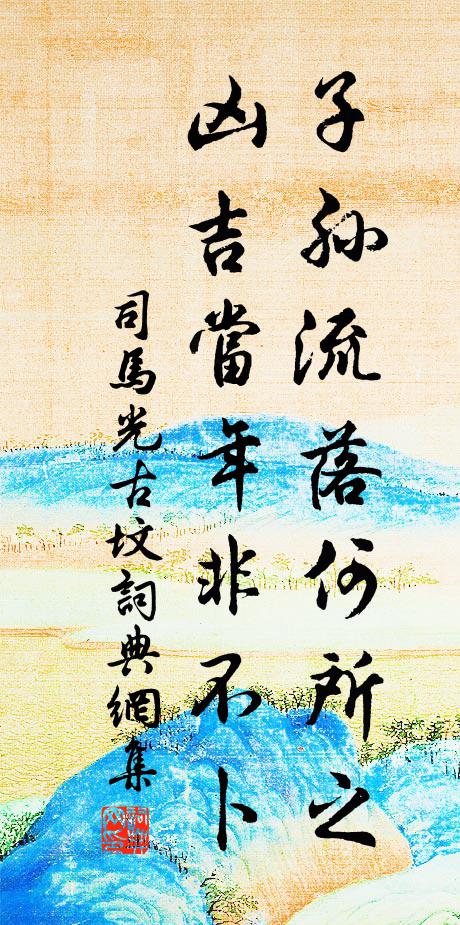 子孫流落何所之
凶吉當年非不卜
司馬光古墳詞典網集